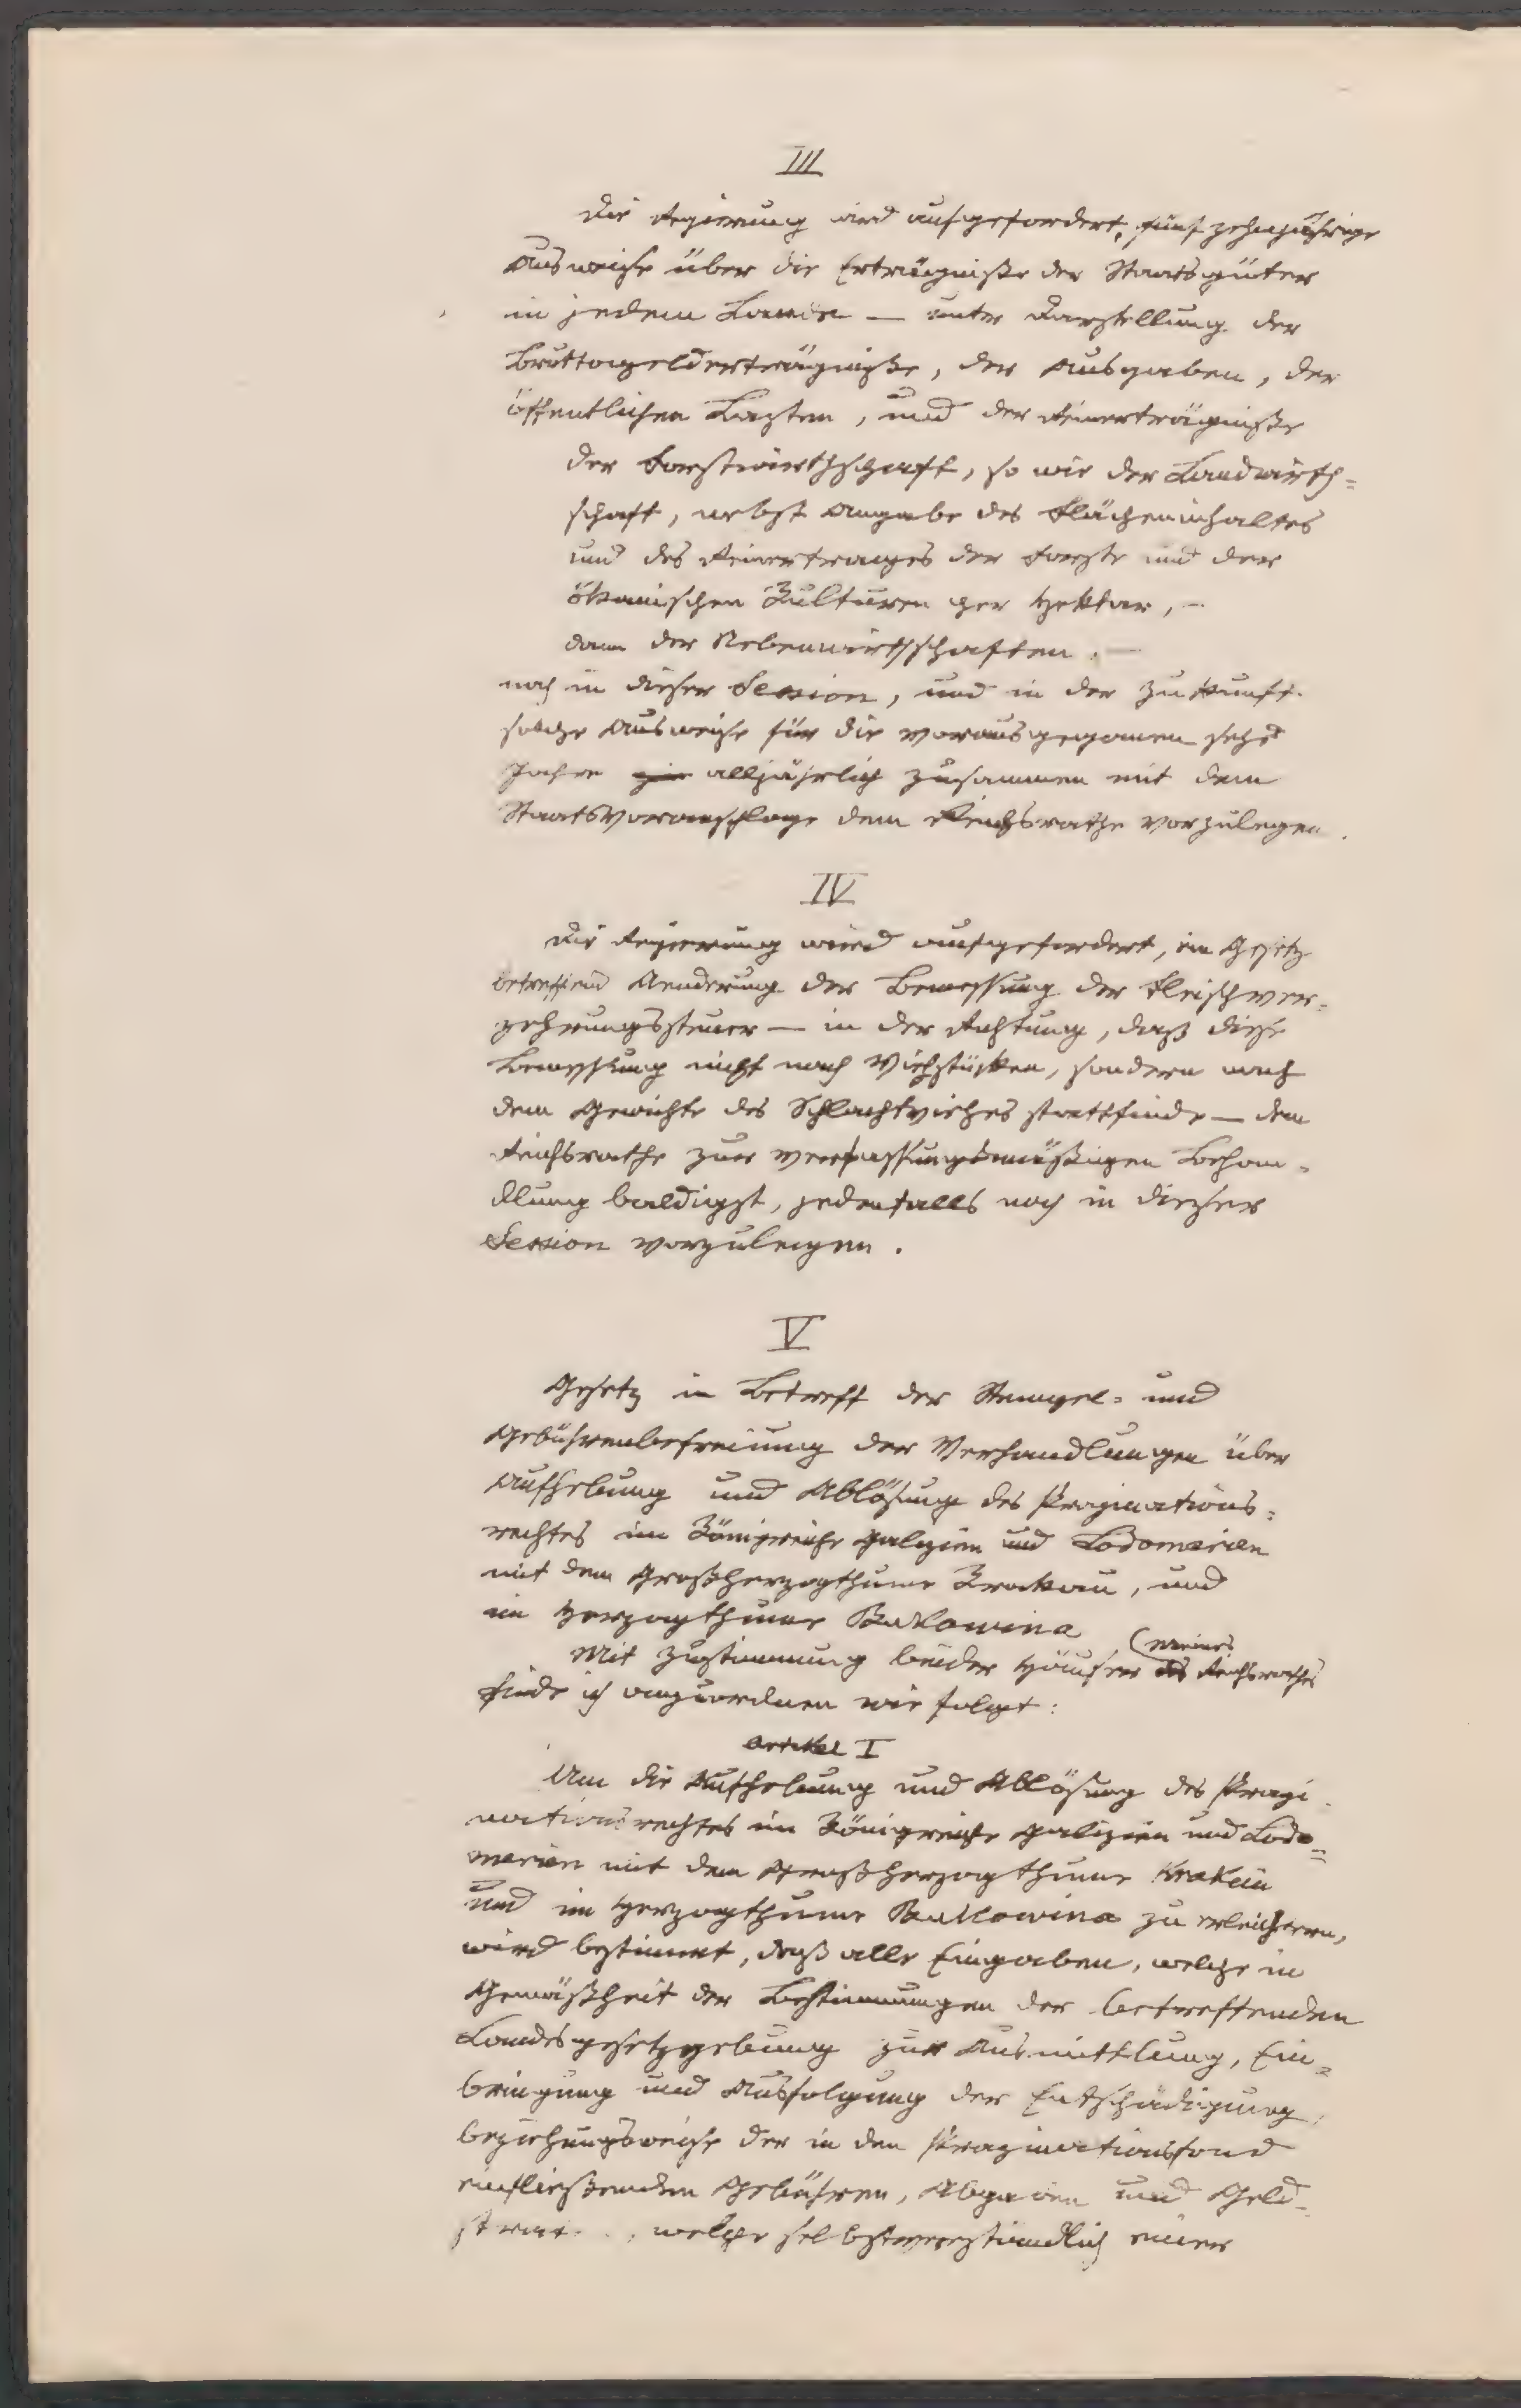 III
Die Regierung wird aufgefordert, fünfzehnjährige
Ausweise über die Erträgniße der Staatsgüter
in jedem Lande — unter Darstellung der
Bruttogelderträgniße, der Ausgaben, der
öffentlichen Lasten, und der Reinerträgniße
der Forstwirthschaft, so wie der Landwirth=
schaft, nebst Angabe des Flächeninhaltes
und des Reinertrages der Forste und der
ökonischen Kulturen per Hektar, —
dann der Nebenwirthschaften. —
noch in dieser Session, und in der Zukunft
solche Ausweise für die vorausgegangenen sechs
Jahre alljährlich zusammen mit dem
Staatsvoranschlage dem Reichsrathe vorzulegen.
IV
Die Regierung wird aufgefordert, ein Gesetz
betreffend Aenderung der Bemessung der Fleischver=
zehrungssteuer — in der Richtung, daß diese
Bemessung nicht nach Viehstücken, sondern nach
dem Gewichte des Schlachtviehes stattfinde — dem
Reichsrathe zur verfassungsmäßigen Behan=
dlung baldigst, jedenfalls noch in dieser
Session vorzulegen.
V
Gesetz in Betreff der Stempel= und
Gebührenbefreiung der Verhandlungen über
Aufhebung und Ablösung des Propinations=
rechtes im Königreiche Galizien und Lodomerien
mit dem Großherzogthume Krakau, und
im Herzogthume Bukowina
Mit Zustimmung beider Häuser (meines Reichsrathes
finde ich anzuordnen wie folgt:
Artikel I
Um die Aufhebung und Ablösung des Propi
nationsrechtes im Königreiche Galizien und Lodo=
merien mit dem Großherzogthume Krakau
und im Herzogthume Bukowina zu erleichtern,
wird bestimmt, daß alle Eingaben, welche in
Gemäßheit der Bestimmungen der betreffenden
Landesgesetzgebung zur Ausmittlung, Ein=
bringung und Ausfolgung der Entschädigung,
beziehungsweise der in den Propinationsfond
einfließenden Gebühren, Abgaben und Geld=
welche selbstverständlich einer